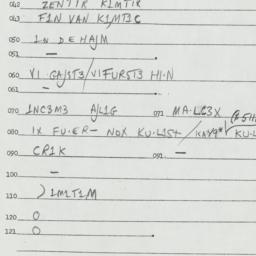 042 ZENTIR KIMTIR
043 FIN VAN KIMTIC
050 IN DE HAJM
051 —
060 VI GAJST3/VIFURST3 HIN
061 —
070 INC3M3 AJIG 071 MA·LC3X
080 IX FU·ER- NOX KU·LIST/KAX9*
090 CRIK 091 —
100 —
110 )IMITIM
120 O
121 O